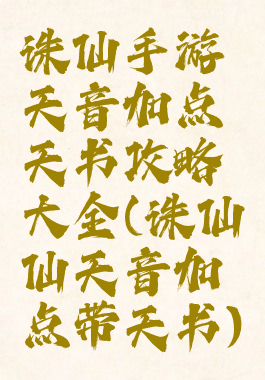 诛仙手游
天音加点
天书攻略
大全(诛仙
仙天音加
点带天书)